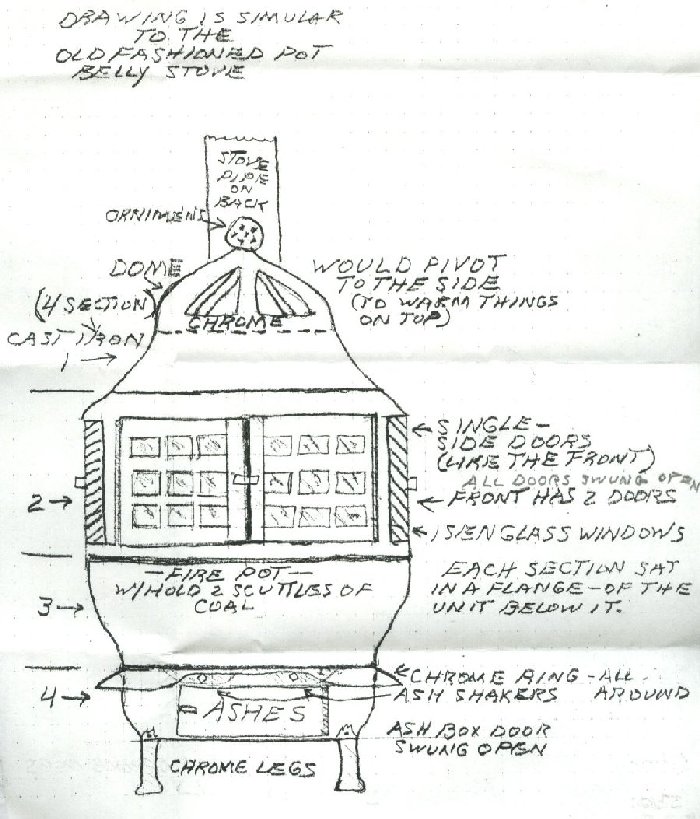 DRAWING IS SIMULAR
TO THE
OLD FASHIONED POT
BELLY STOVE
STOVE
PIPE
ON
BACK
ORNIMENS
DOME
WOULD PIVOT
TO THE SIDE
(TO WARM THINGS
ON TOP)
(4 SECTION)
CHROME
CAST IRON
1
SINGLE-
SIDE DOORS
(LIKE THE FRONT)
ALL DOORS SWUNG OPEN
2
FRONT HAS 2 DOORS
ISENGLASS WINDOWS
- FIRE POT -
W/HOLD 2 SCUTTLES OF
COAL
EACH SECTION SAT
IN A FLANGE-OF THE
UNIT BELOW IT.
3
CHROME RING-ALL
AROUND
4
ASH SHAKERS
ASHES
ASH BOX DOOR
SWUNG OPEN
CHROME LEGS